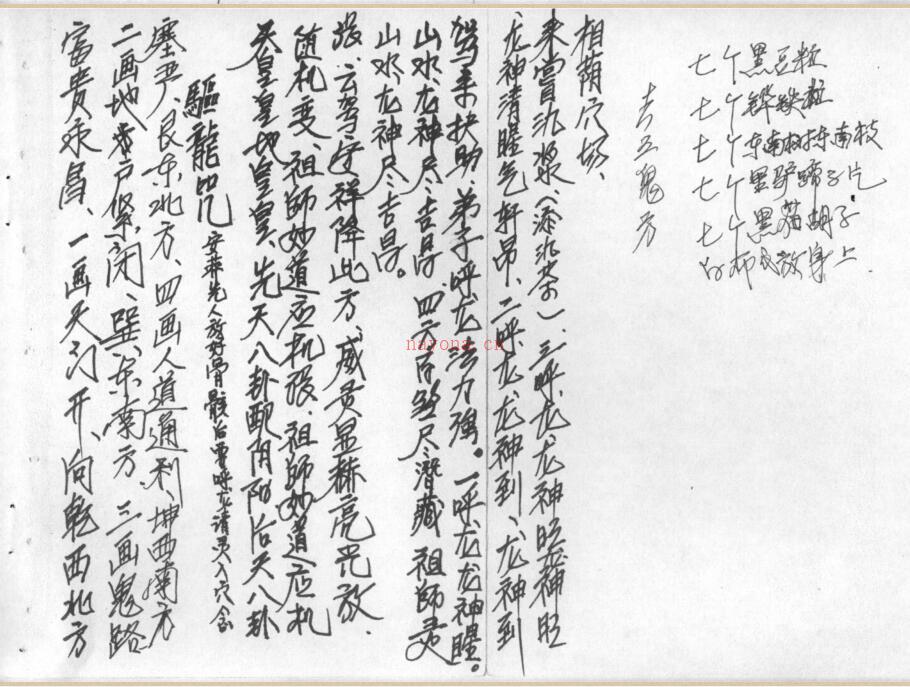 富贵永昌、一画天门开、向乾西北方
二画地户紧闭、巽东南方 三画鬼路
塞严、艮东北方、四画人道通利、坤西南方
驅龍咒 安葬先人放好骨骸后要呼龙请灵入穴念
天皇皇地皇皇、先天八卦配阴阳后天八卦
随机变、祖师妙道应机张、祖师妙道应机
张、云驾安祥降此方、威灵显赫亮光放、
山水龙神尽尽吉昌。
山水龙神尽尽吉昌、四方凶煞尽潜藏 祖師灵
驾来扶助弟子呼龙法力強。一呼龙龙神醒。
龙神清醒气轩昂、二呼龙龙神到、龙神到
来嘗氿浆（添氿茶）三呼龙龙神旺龙神旺
相荫穴场、
去五鬼方
七个黑豆粒
七个铧铁粒
七个东南桃树东南枝
七个黑驴蹄子片
七个黑猫胡子
白布包放身上
nayona.cn